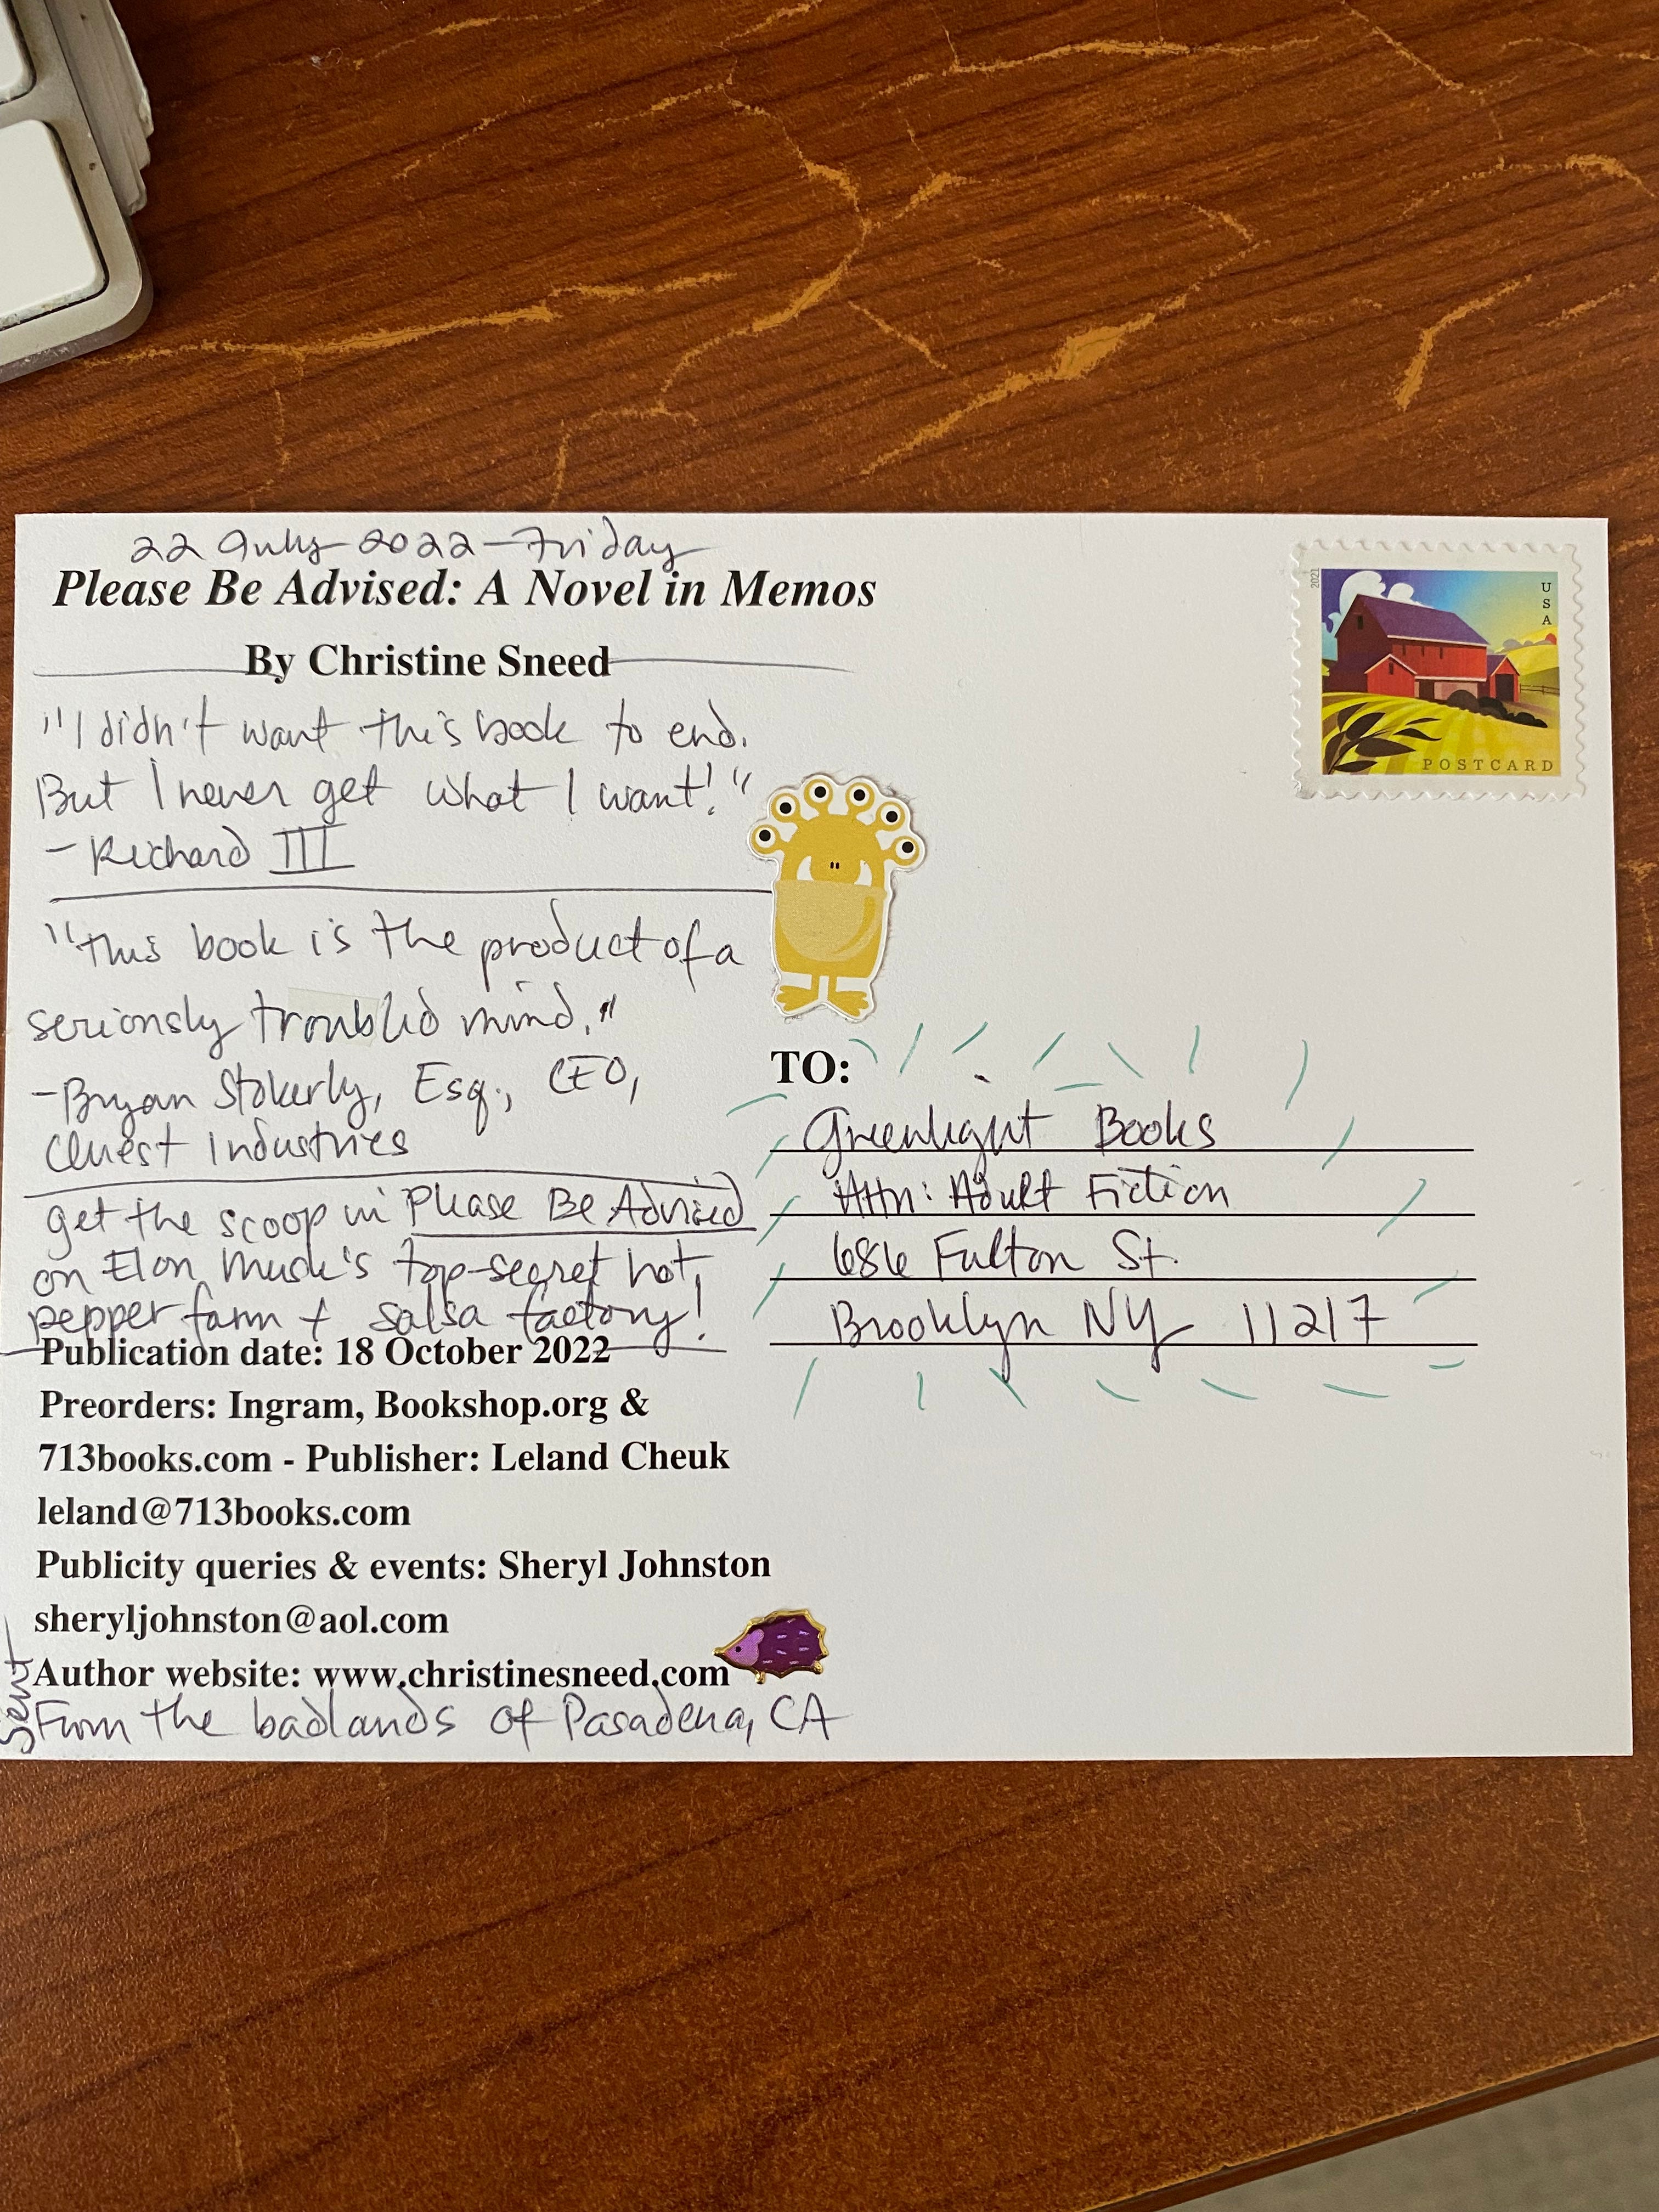 22 July 2022 – Friday
Please Be Advised: A Novel in Memos
By Christine Sneed
"I didn't want this book to end.
But I never get what I want!"
– Richard III
"This book is the product of a
seriously troubled mind."
– Bryan Stokerly, Esq., CEO,
Quest Industries
get the scoop in Please Be Advised
on Elon Musk's top-secret hot
pepper farm + salsa factory!
Publication date: 18 October 2022
Preorders: Ingram, Bookshop.org &
713books.com - Publisher: Leland Cheuk
leland@713books.com
Publicity queries & events: Sheryl Johnston
sheryljohnston@aol.com
Author website: www.christinesneed.com
Sent From the badlands of Pasadena, CA
2021
USA
POSTCARD
TO:
Greenlight Books
Attn: Adult Fiction
686 Fulton St.
Brooklyn NY 11217